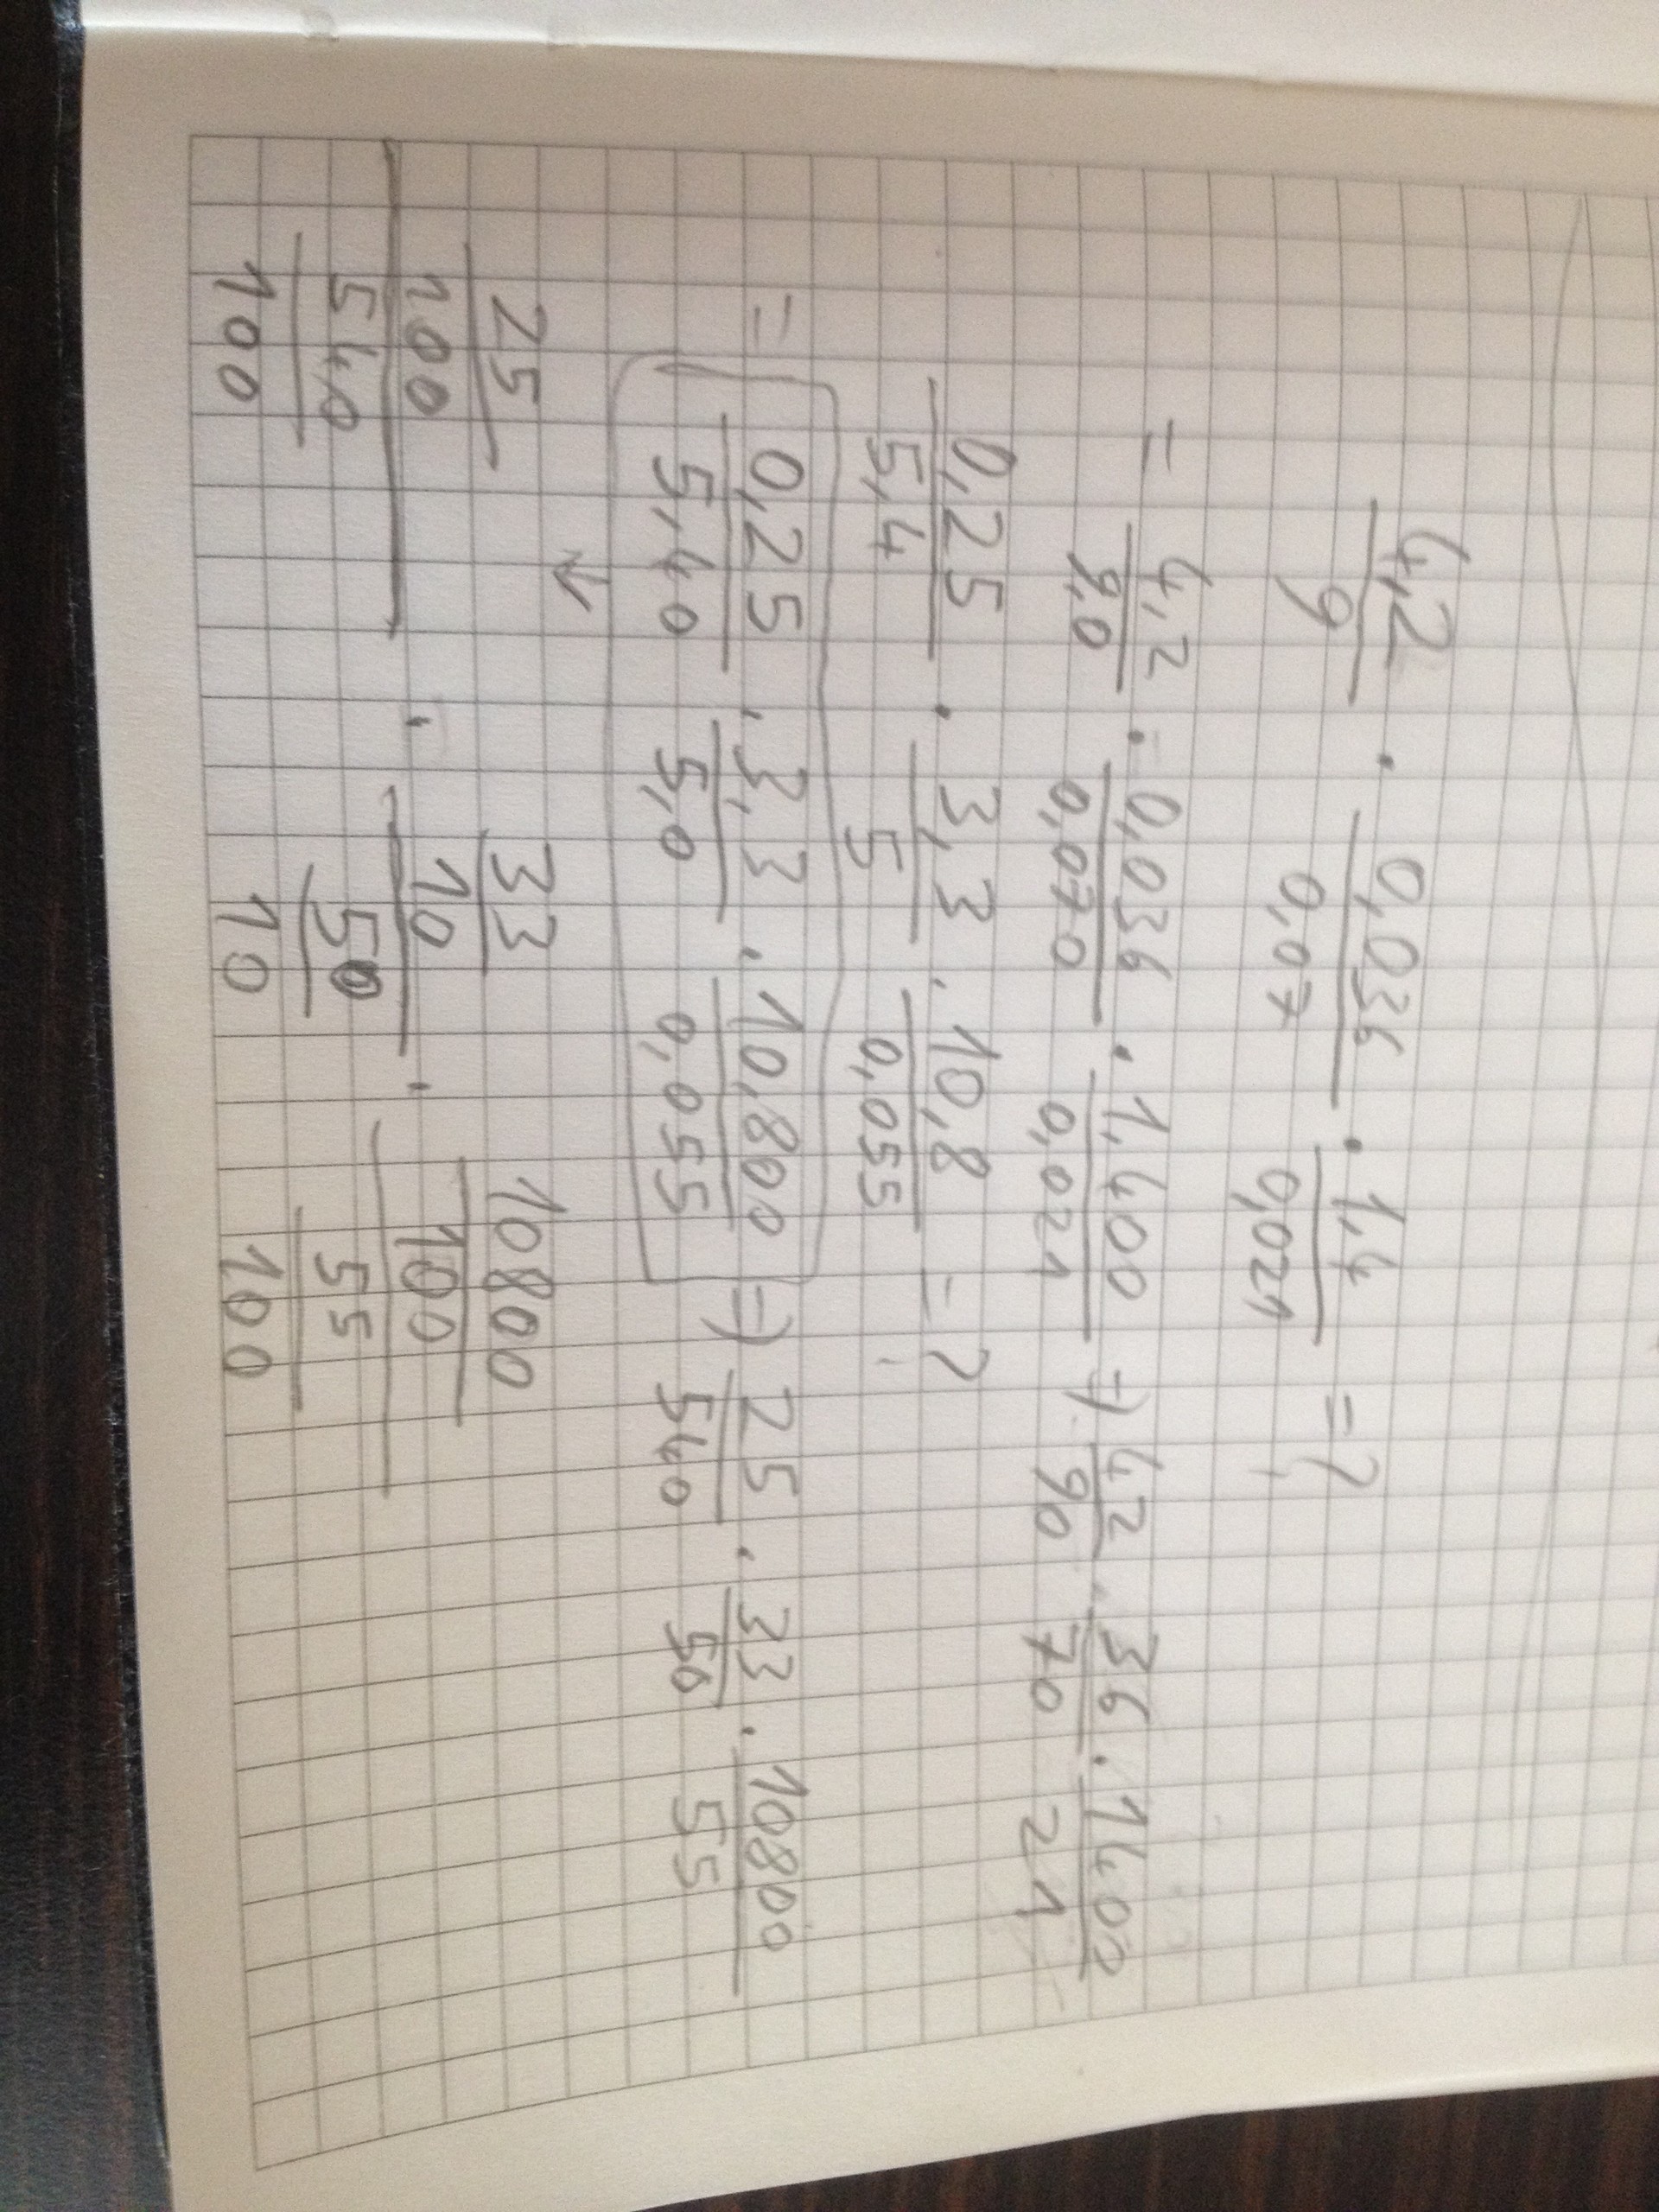 4,2/9 · 0,036/0,07 · 1,4/0,021 = ?
= 4,2/9,0 · 0,036/0,070 · 1,400/0,021 => 42/90 · 36/70 · 1400/21
0,25/5,4 · 3,3/5 · 10,8/0,055 = ?
= 0,25/5,40 · 3,3/5,0 · 10,800/0,055 => 25/540 · 33/50 · 10800/55
25/100 / 540/100 · 33/10 / 50/10 · 10800/100 / 55/100